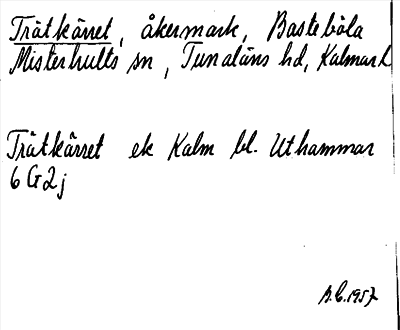 Trätkärret, åkermark, Basteböla
Misterhults sn, Tunaläns hd, Kalmar l
Trätkärret ek Kalm bl. Uthammar
6 G 2 j
B.C. 1957